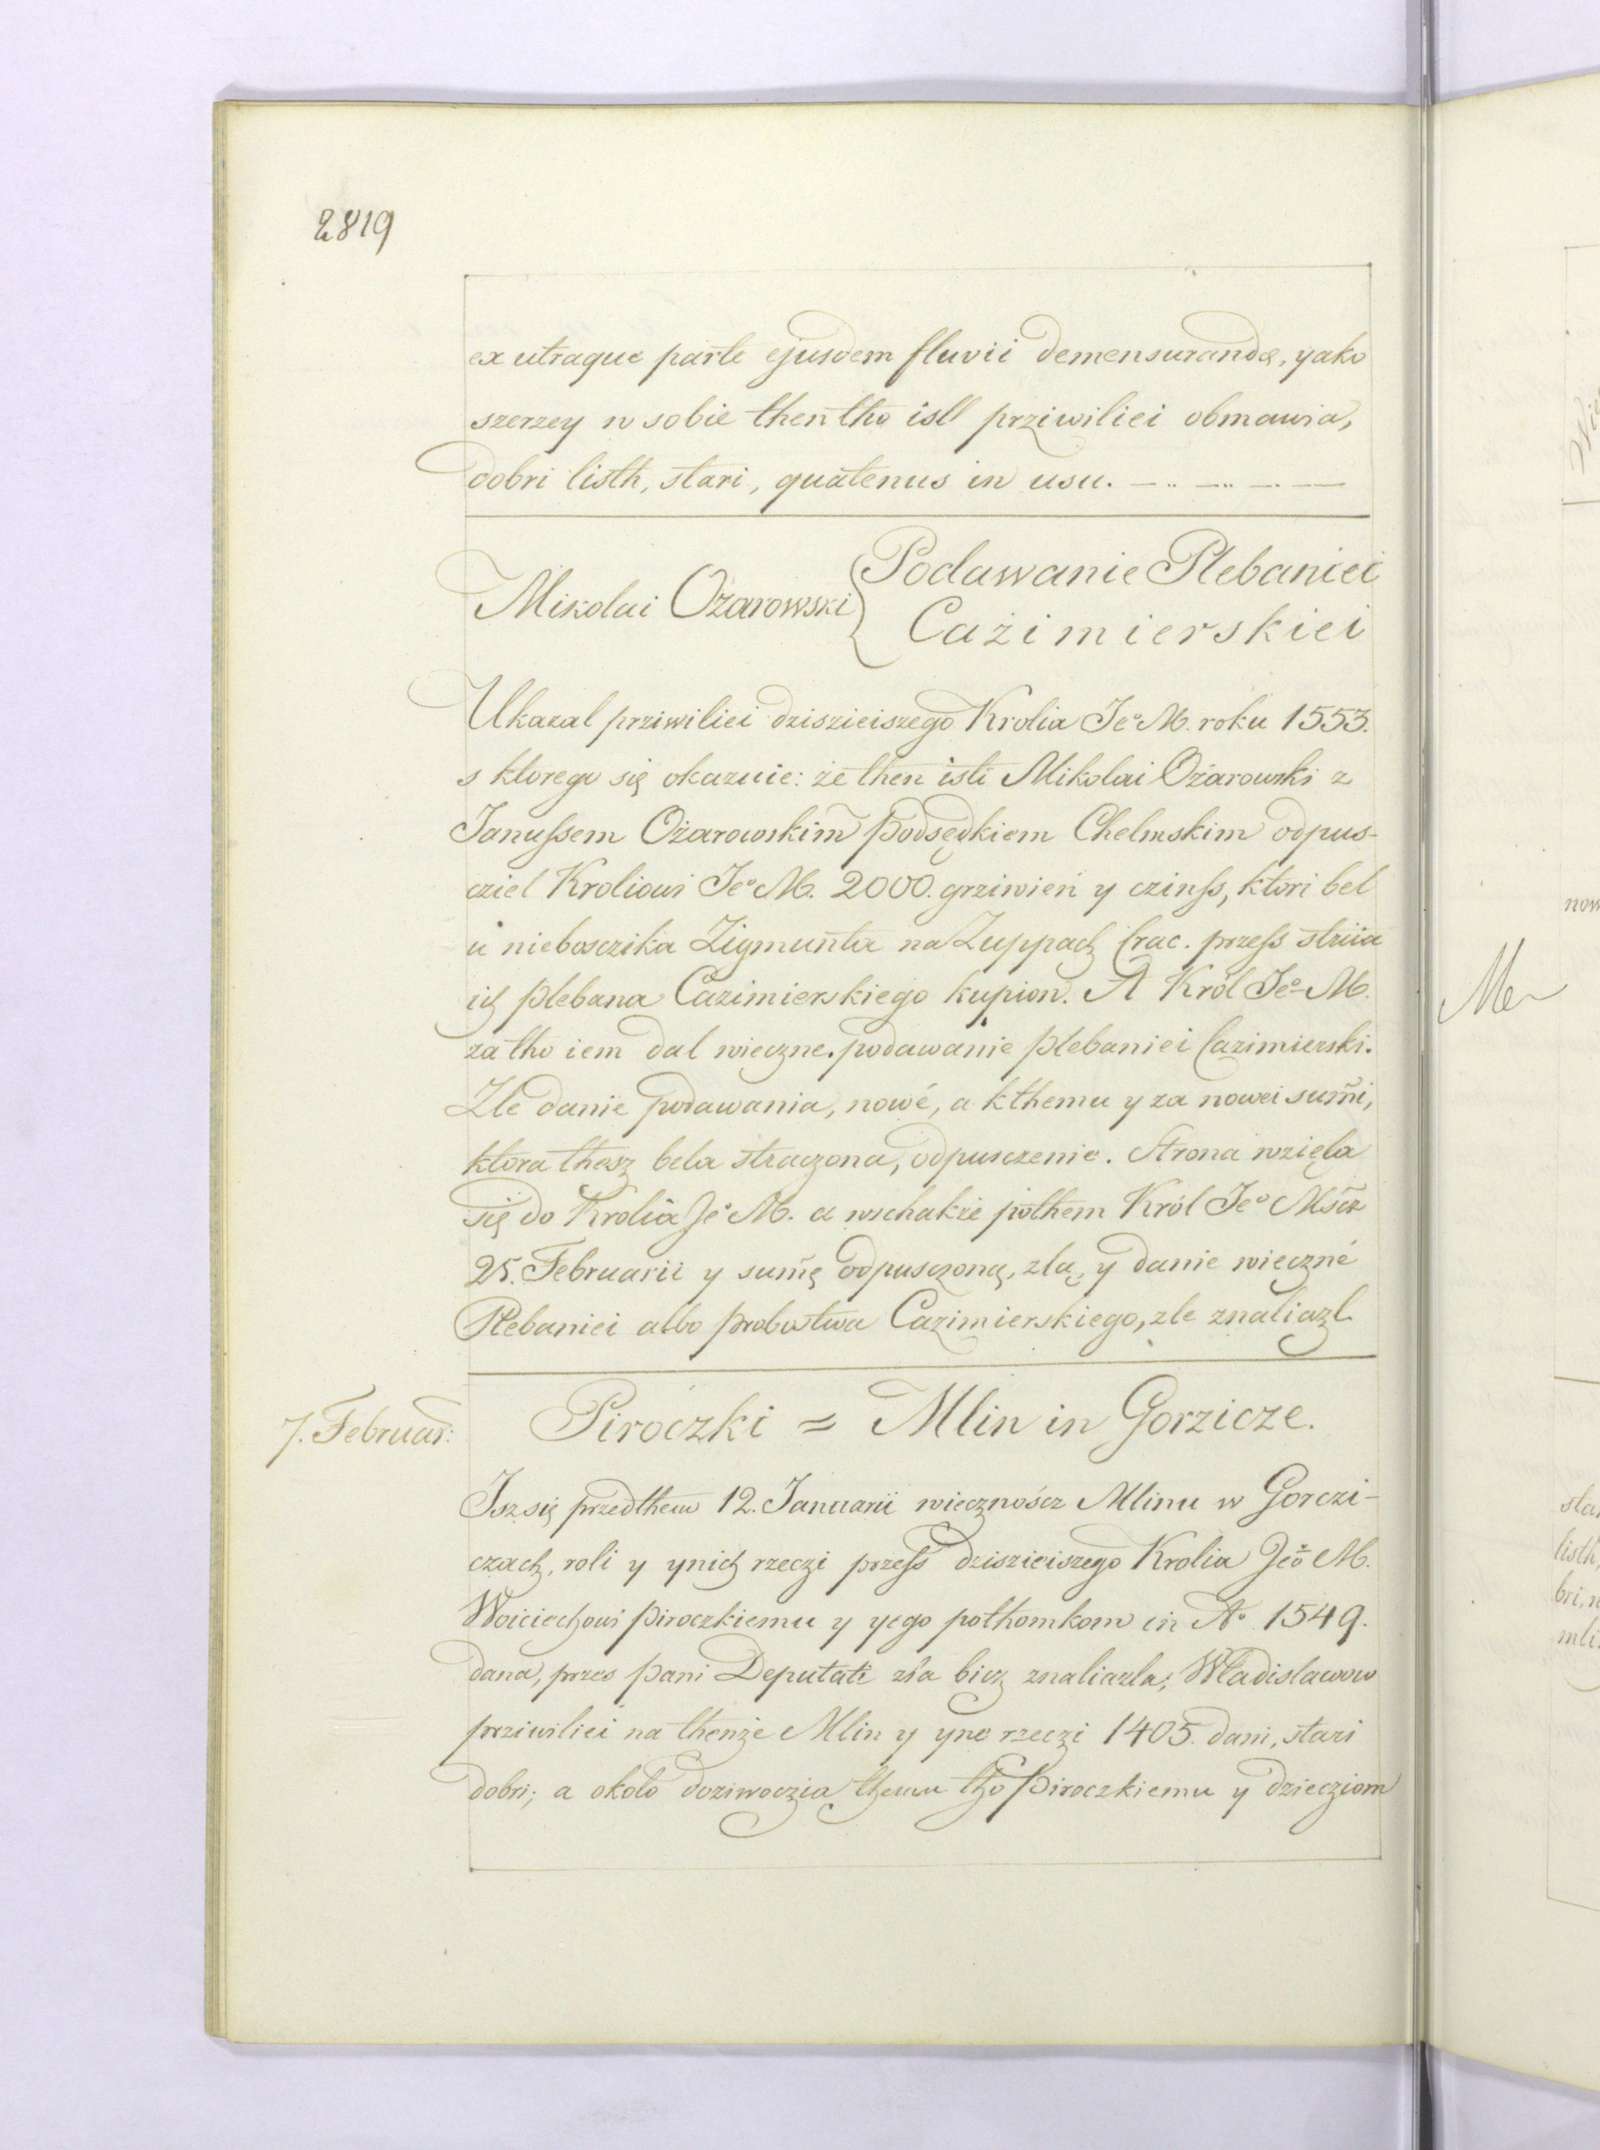 2819
ex utraque parte ejusdem fluvii demensurandæ, yako
szerzey w sobie then tho isti prziwiliei obmawia,
dobri listh, stari, quatenus in usu.
Mikolai Ożarowski { Podawanie Plebaniei
Cażimierskiei
Ukazal prziwiliei dzisieiszego Krolia Je° M. roku 1553.
s ktorego się okazuie: że then isti Mikolai Ożarowski z
Janussem Ożarowskim Podsędkiem Chelmskim odpus-
cziel Kroliowi Je° M. 2000. grziwień y czinss, ktori bel
u nieboszczika Zigmunta na Zuppach Crac. przess striia
ich Plebana Cazimierskiego kupion. A Król Je° M.
za tho iem dal wieczne podawanie Plebaniei Cazimierski.
Zle danie podawania, nowé, a kthemu y za nowei sum̃i,
ktora thesz bela straczona, odpusczenie. Strona wzięla
się do Krolia Je° M. a wschakże pothem Król Je° Mścz
25. Februarii y sum̃ę odpusczoną, złą, y danie wieczné
Plebaniei albo Probostwa Cazimierskiego, zle znaliazl.
7. Februar:
Piroczki = Mlin in Gorzicze.
Isz się przedthem 12. Januarii wiecznoścz Mlinu w Gorczi-
czach, roli y ynich rzeczi przess dzisieiszego Krolia Jeo M.
Woiciechowi Piroczkiemu y yego pothomkom in A° 1549.
dana, przes Pani Deputati zła bicz znaliazla; Władislawow
prziwiliei na thenże Mlin y yne rzeczi 1405. dani, stari
dobri; a około doziwoczia themu tho Piroczkiemu y dziecziom
Me
now
listh,